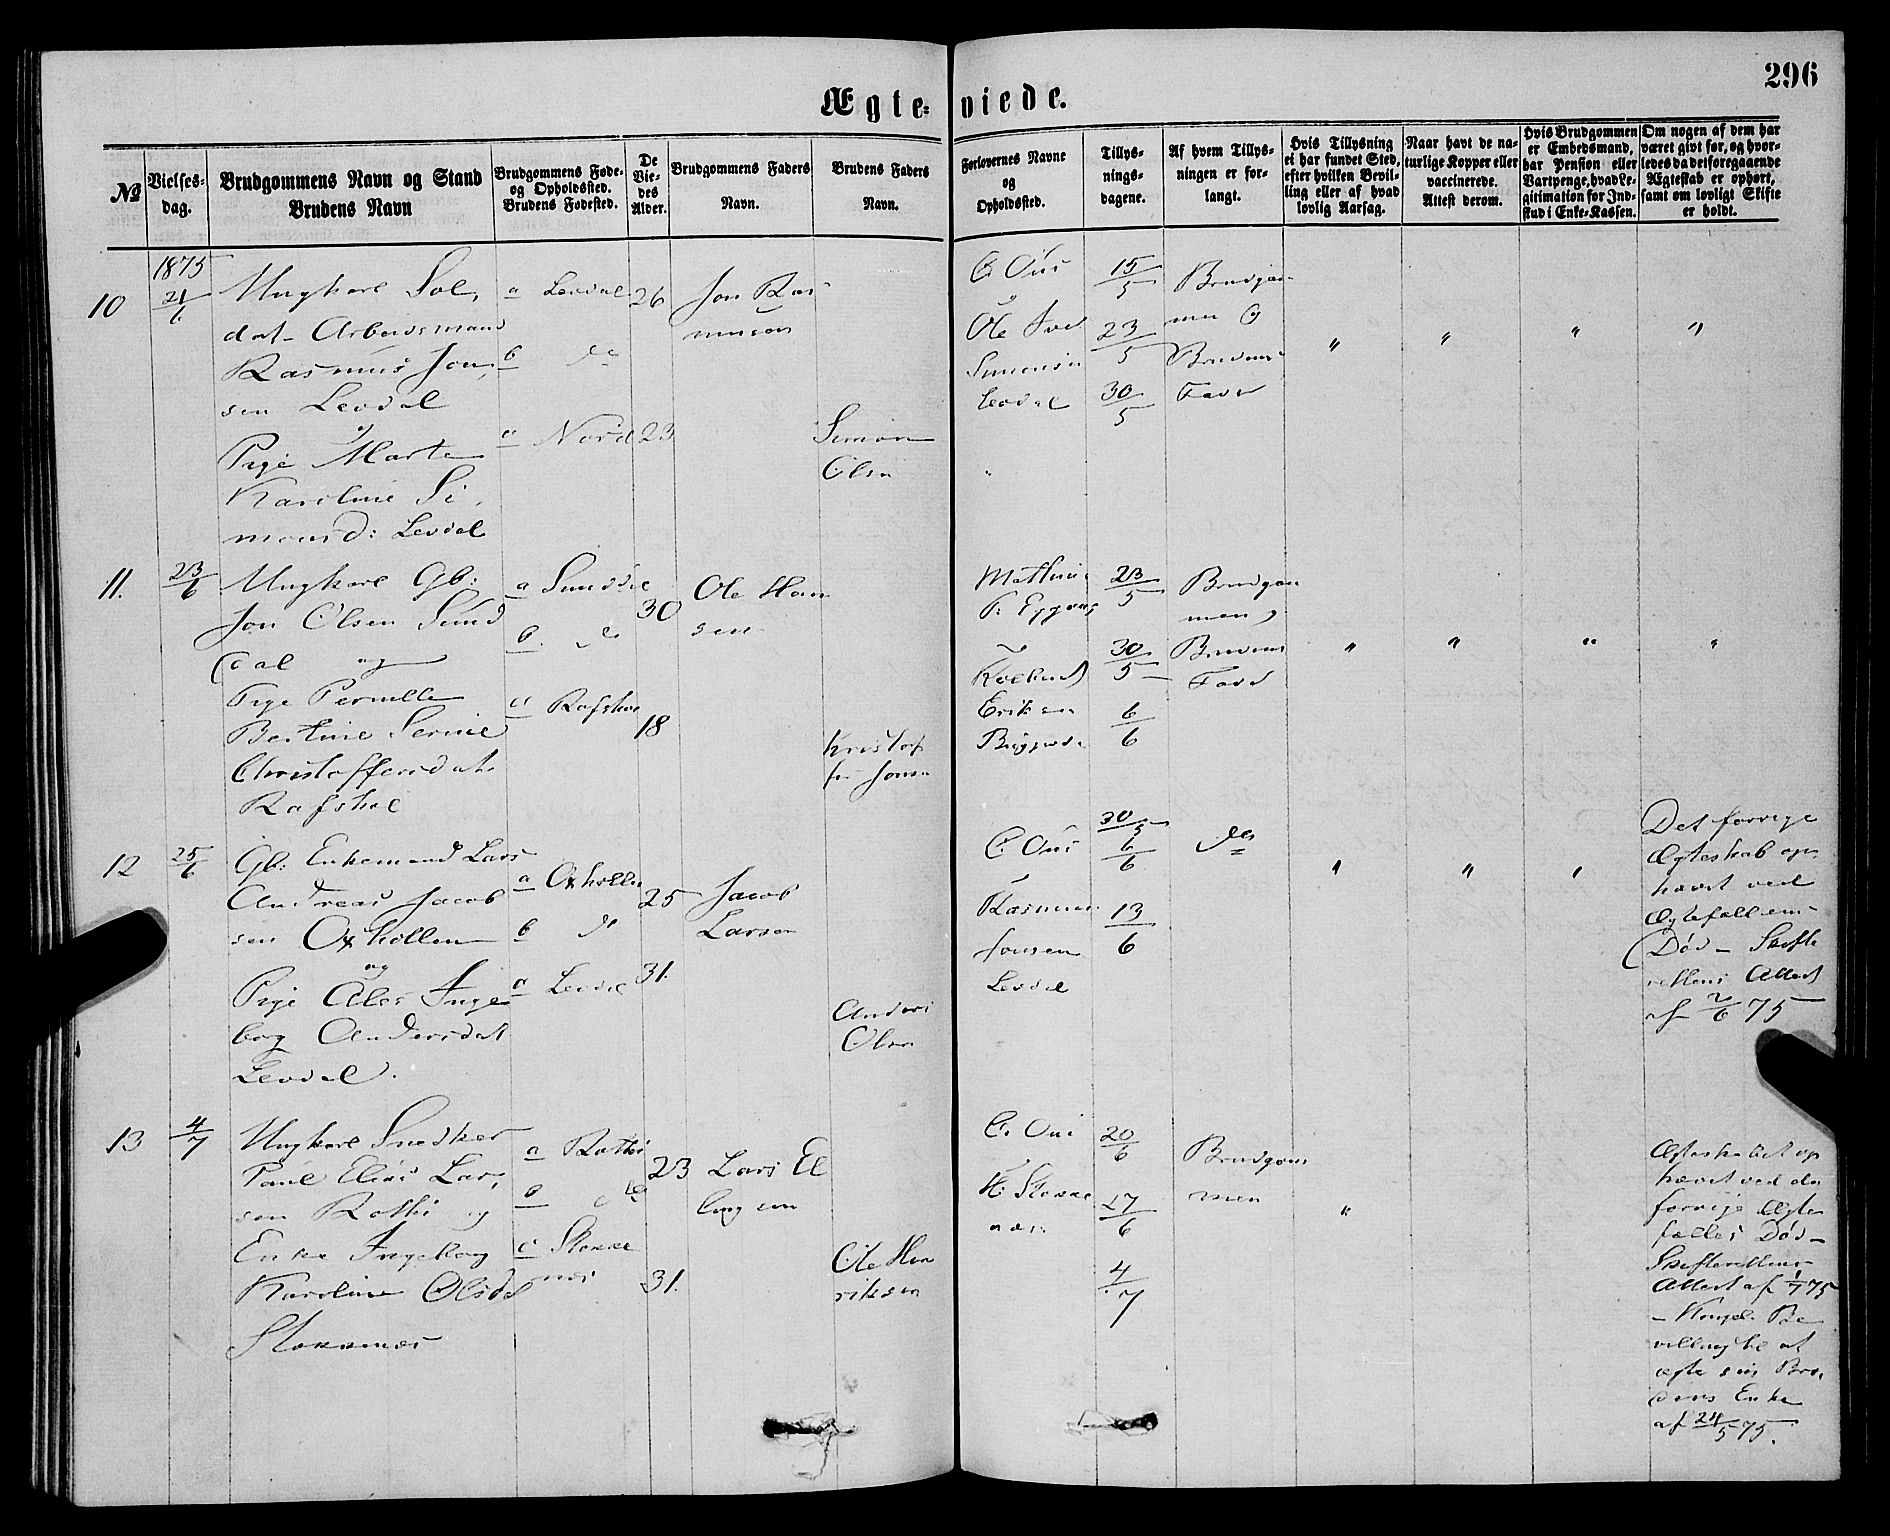 296
Ægte-viede.
№
Vielses-
dag.
Brudgommens Navn og Stand
Brudens Navn
Brudgommens Føde-
og Opholdssted.
Brudens Fødested.
De
Vie-
des
Alder.
Brudgommens Faders
Navn.
Brudens Faders
Navn.
Forlovernes Navne
og
Opholdssted.
Tillys-
nings-
dagene.
Af hvem Tillys-
ningen er for-
langt.
Hvis Tillysning
ei har fundet Sted,
efter hvilken Bevil-
ling eller af hvad
lovlig Aarsag.
Naar havt de na-
turlige Kopper eller
vaccinerede.
Attest derom.
Hvis Brudgommen
er Embedsmand,
har Pension eller
Vartpenge, hvad Le-
gitimation for Ind-
skud i Enke-Kassen.
Om nogen af dem har
været gift før, og hvor-
ledes da det foregaaende
Ægteskab er ophørt,
samt om lovligt Skifte
er holdt.
1875
10
21/6
Ungkarl Sol,
dat Arbeidsmand
Rasmus Jon,
sen Levdal
og
Pige Marte
Karoline Si,
monsd: Levdal
a Levdal
b do
a Nord
26
23
Jon Ras
mussen
Simon
Olsen
C. Ous
Ole
Simonsen
Levdal
15/5
23/5
30/5
Brudgom
men og
Brudens
Fader
" " " "
11.
23/6
Ungkarl Gb:
Jon Olsen Sund
dal og
Pige Pernille
Bertine Serine
Christoffersdat.
Rafshol
a Sunddal
b do
a Rafshol
30
18
Ole Han
sen
Kristof
fer Jonsen
Mathias
P.
Eriksen
23/5
30/5
6/6
Brudgom
men og
Brudens
Fader
" " " "
12
25/6
Gb: Enkemand Lars
Andreas Jacob
sen Oxhollen
og
Pige Ales Inge
borg Andersdat
Levdal.
a Oxhollen
b do
a Levdal
25
31.
Jacob
Larsen
Anders
Olsen
C. Ous
Rasmus
Jonsen
Levdal
30/5
6/6
13/6
do
" " "
Det forrige
Ægteskab op
hævet ved
Ægtefællens
Død - Skifte
rettens Attest
af 2/6 75
13
4/7
Ungkarl Snedker
Paul Elias Lar,
sen Rotti og
Enke Ingeborg
Karoline Olsd
Stokknæs
a Rotti
b do
a Stokke
næs
23
31.
Lars El
lingsen
Ole Hen
riksen
C. Ous
H. Stokke
næs.
20/6
27/6
4/7
Brudgom
men
"
Ægteskabet op
hævet ved den
forrige Ægte
fælles Død -
Skifterettens
Attest af 1/7 75
- Kongel. Be
villing til at
ægte sin Bro,
ders Enke
af 24/5 75.